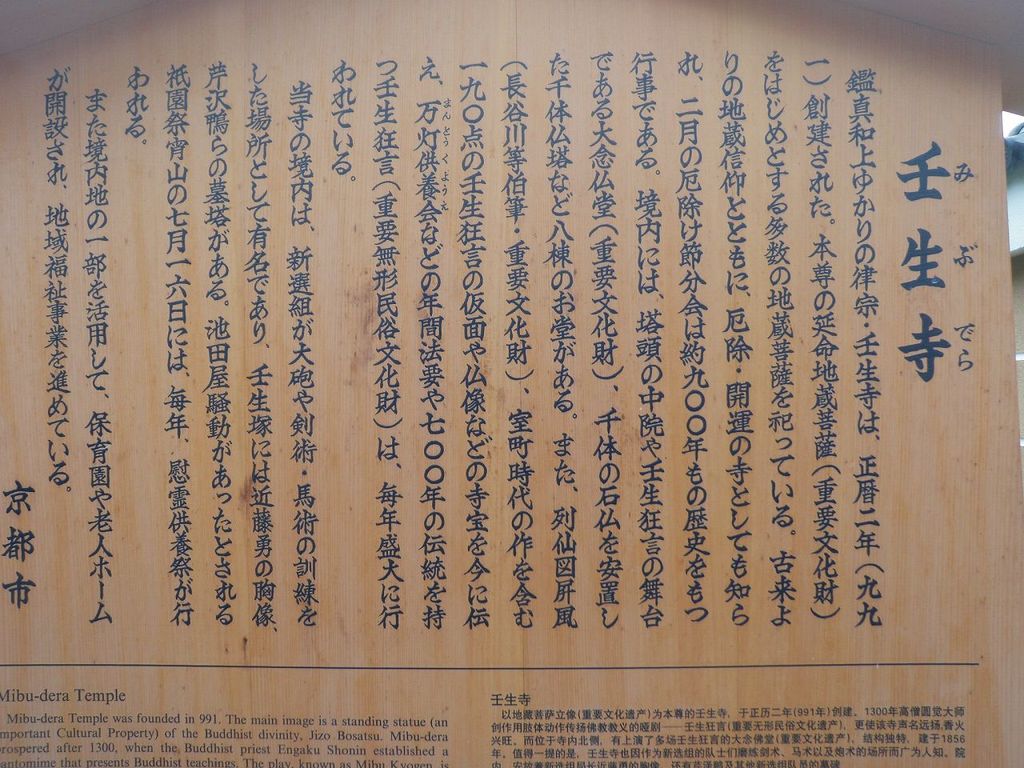 壬生寺
みぶでら
鑑真和上ゆかりの律宗・壬生寺は、正暦二年（九九
一）創建された。本尊の延命地蔵菩薩（重要文化財）
をはじめとする多数の地蔵菩薩を祀っている。古来よ
りの地蔵信仰とともに、厄除・開運の寺としても知ら
れ、二月の厄除け節分会は約九〇〇年もの歴史をもつ
行事である。境内には、塔頭の中院や壬生狂言の舞台
である大念仏堂（重要文化財）、千体の石仏を安置し
た千体仏塔など八棟のお堂がある。また、列仙図屏風
（長谷川等伯筆・重要文化財）、室町時代の作を含む
一九〇点の壬生狂言の仮面や仏像などの寺宝を今に伝
え、万灯供養会などの年間法要や七〇〇年の伝統を持
まんとうくようえ
つ壬生狂言（重要無形民俗文化財）は、毎年盛大に行
われている。
当寺の境内は、新選組が大砲や剣術・馬術の訓練を
した場所として有名であり、壬生塚には近藤勇の胸像、
芹沢鴨らの墓塔がある。池田屋騒動があったとされる
祇園祭宵山の七月一六日には、毎年、慰霊供養祭が行
われる。
また境内地の一部を活用して、保育園や老人ホーム
が開設され、地域福祉事業を進めている。
京都市
Mibu-dera Temple
Mibu-dera Temple was founded in 991. The main image is a standing statue (an
mportant Cultural Property) of the Buddhist divinity, Jizo Bosatsu. Mibu-dera
prospered after 1300, when the Buddhist priest Engaku Shonin established a
pantomime that presents Buddhist teachings. The play, known as Mibu Kyogen, is
壬生寺
以地藏菩萨立像(重要文化遗产)为本尊的壬生寺，于正历二年(991年)创建。1300年高僧圆觉大师
创作用肢体动作传扬佛教教义的哑剧——壬生狂言(重要无形民俗文化遗产)，更使该寺声名远扬，香火
兴旺。而位于寺内北侧，有上演了多场壬生狂言的大念佛堂(重要文化遗产)，结构独特，建于1856
年。值得一提的是，壬生寺也因作为新选组的队士们磨练剑术、马术以及炮术的场所而广为人知。院
内，安放着新选组局长近藤勇的胸像，还有芹泽鸭及其他新选组队员的墓碑